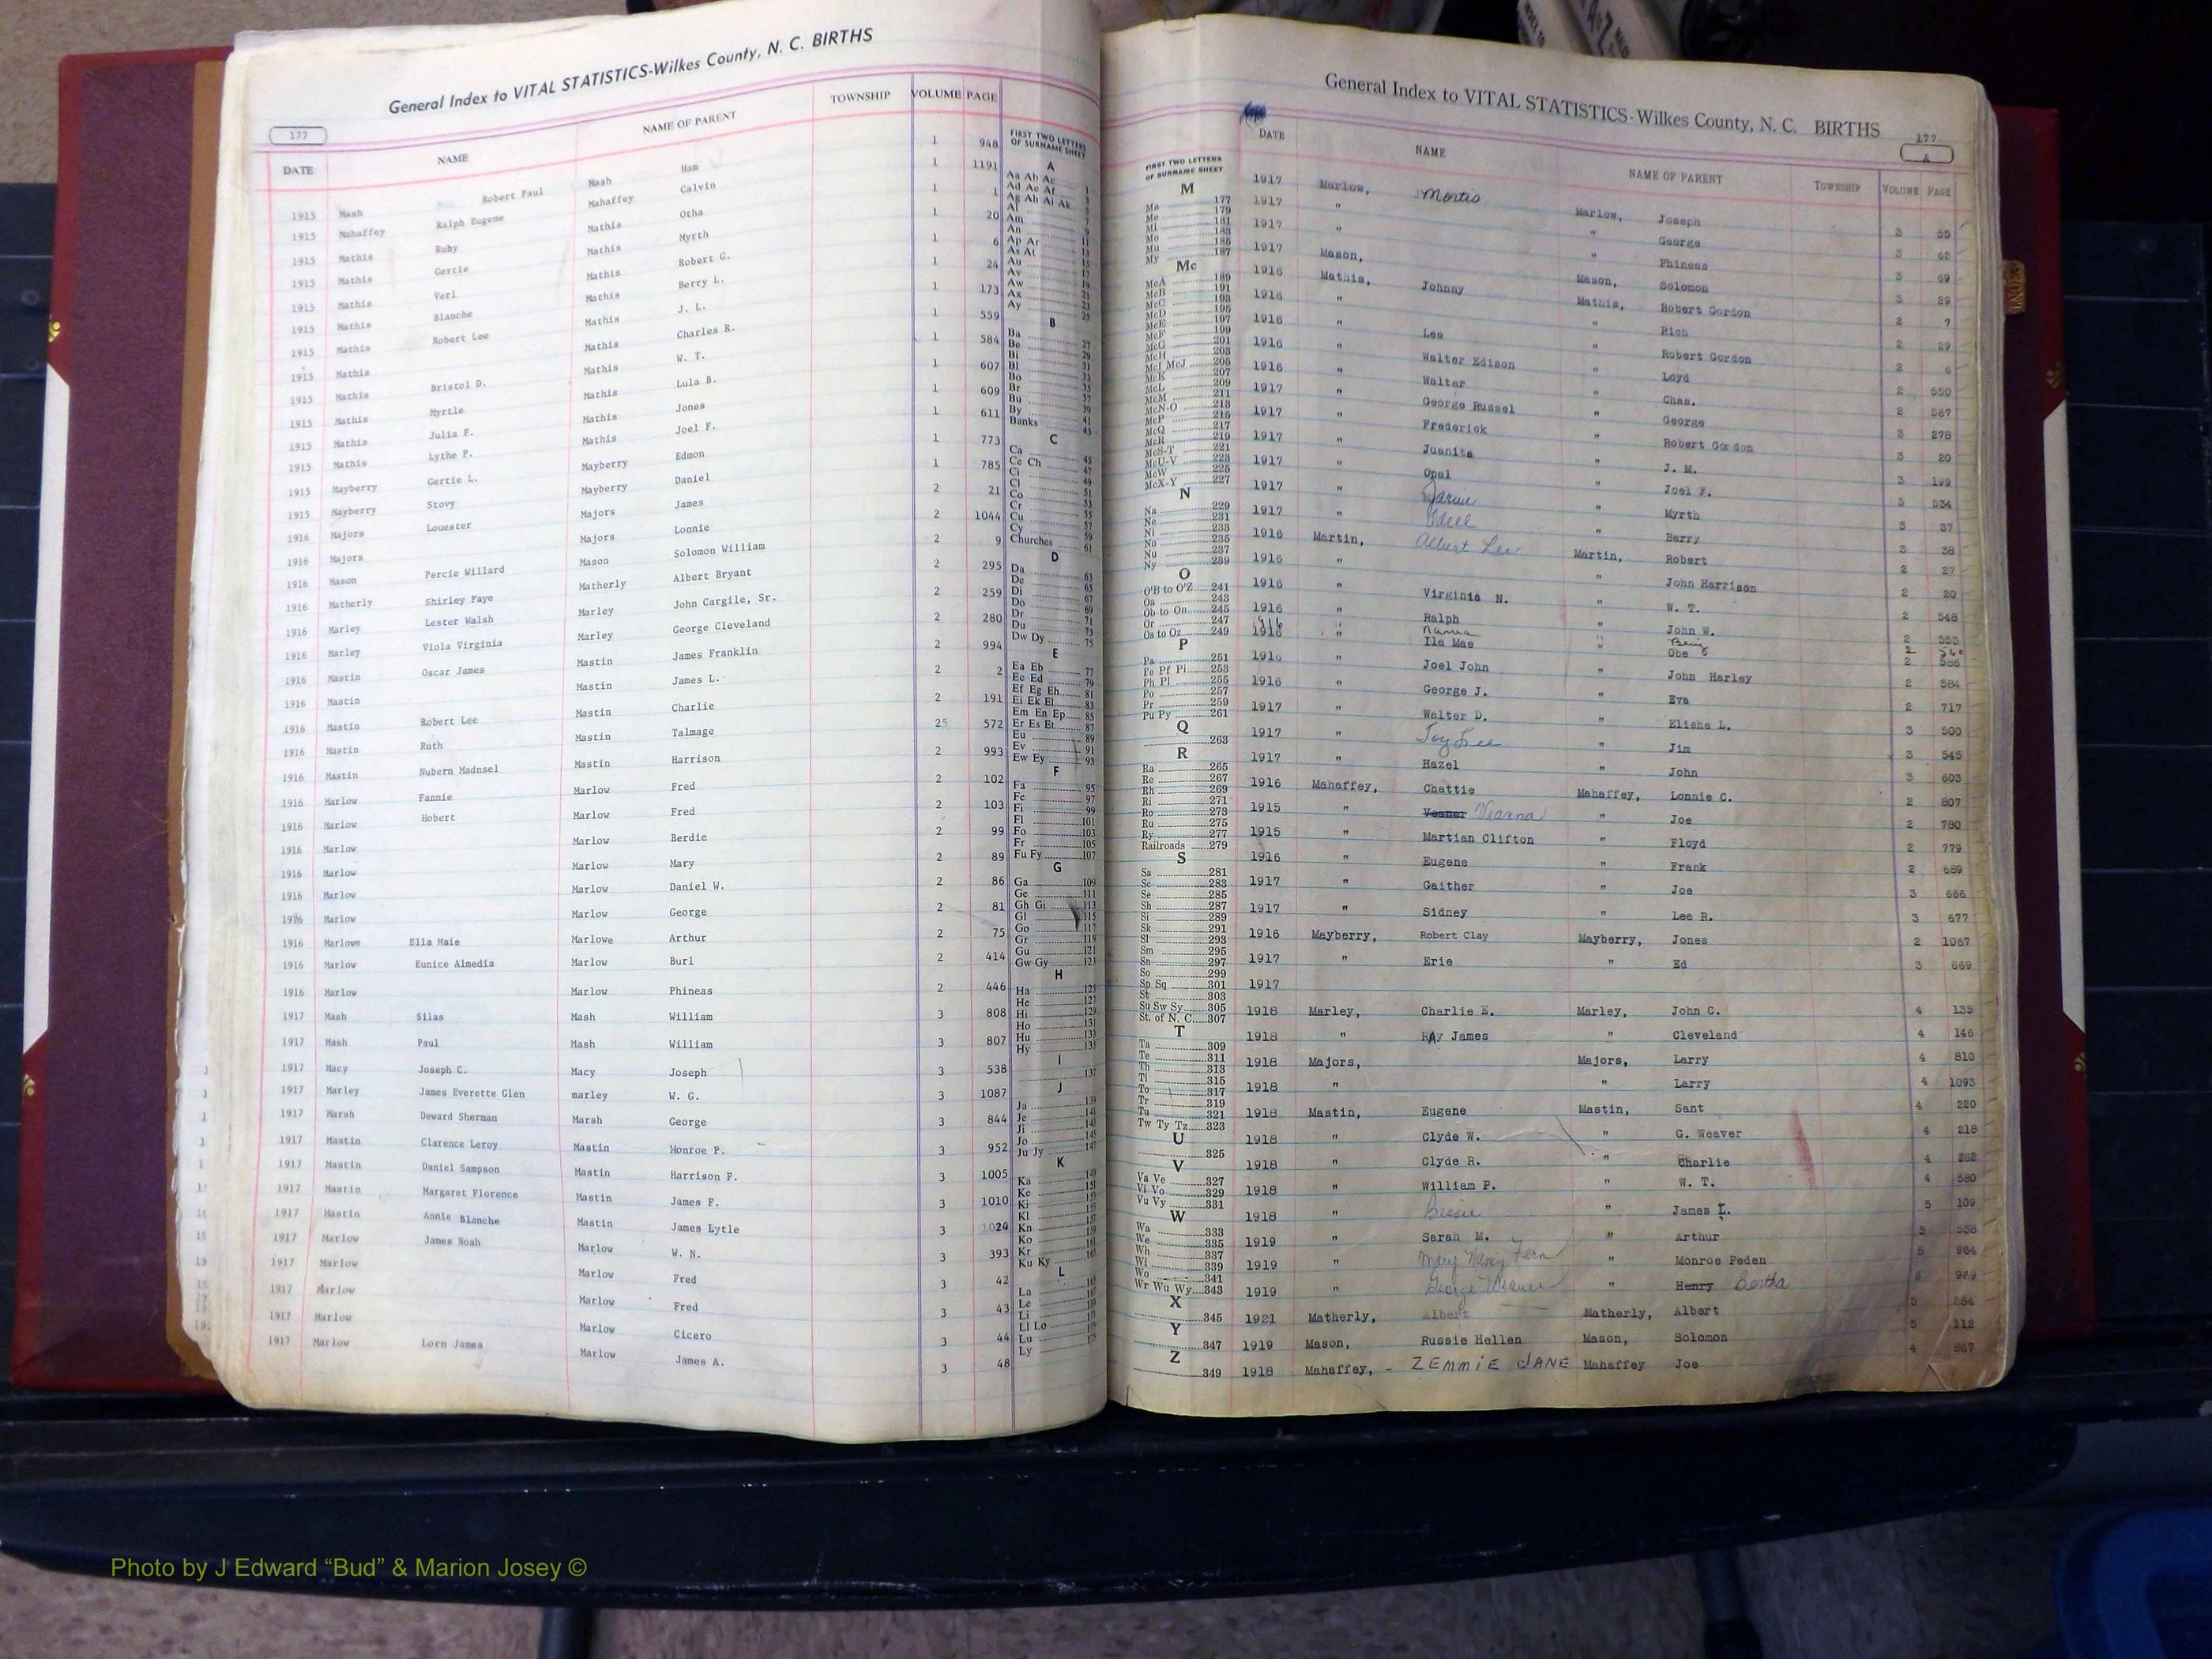 General Index to VITAL STATISTICS-Wilkes County, N. C. BIRTHS
177
DATE NAME NAME OF PARENT TOWNSHIP VOLUME PAGE
1915 Mash Robert Paul Mash Ham 1 948
1915 Mahaffey Ralph Eugene Mahaffey Calvin 1 1191
1915 Mathis Ruby Mathis Otha 1 1
1915 Mathis Gertie Mathis Myrth 1 20
1915 Mathis Verl Mathis Robert G. 1 6
1915 Mathis Blanche Mathis Berry L. 1 24
1915 Mathis Robert Lee Mathis J. L. 1 173
1915 Mathis Mathis Charles R. 1 559
1915 Mathis Bristol D. Mathis W. T. 1 584
1915 Mathis Myrtle Mathis Lula B. 1 607
1915 Mathis Julia F. Mathis Jones 1 609
1915 Mathis Lythe P. Mathis Joel F. 1 611
1915 Mayberry Gertie L. Mayberry Edmon 1 773
1915 Mayberry Stovy Mayberry Daniel 1 785
1916 Majors Louester Majors James 2 21
1916 Majors Majors Lonnie 2 1044
1916 Mason Percie Willard Mason Solomon William 2 9
1916 Matherly Shirley Faye Matherly Albert Bryant 2 295
1916 Marley Lester Walsh Marley John Cargile, Sr. 2 259
1916 Marley Viola Virginia Marley George Cleveland 2 280
1916 Mastin Oscar James Mastin James Franklin 2 994
1916 Mastin Mastin James L. 2 2
1916 Mastin Robert Lee Mastin Charlie 2 191
1916 Mastin Ruth Mastin Talmage 25 572
1916 Mastin Nubern Madnsel Mastin Harrison 2 993
1916 Marlow Fannie Marlow Fred 2 102
1916 Marlow Hobert Marlow Fred 2 103
1916 Marlow Marlow Berdie 2 99
1916 Marlow Marlow Mary 2 89
1916 Marlow Marlow Daniel W. 2 86
1916 Marlow Marlow George 2 81
1916 Marlowe Ella Maie Marlowe Arthur 2 75
1916 Marlow Eunice Almedia Marlow Burl 2 414
1916 Marlow Marlow Phineas 2 446
1917 Mash Silas Mash William 3 808
1917 Mash Paul Mash William 3 807
1917 Macy Joseph C. Macy Joseph 3 538
1917 Marley James Everette Glen marley W. G. 3 1087
1917 Marsh Deward Sherman Marsh George 3 844
1917 Mastin Clarence Leroy Mastin Monroe P. 3 952
1917 Mastin Daniel Sampson Mastin Harrison F. 3 1005
1917 Mastin Margaret Florence Mastin James F. 3 1010
1917 Mastin Annie Blanche Mastin James Lytle 3 1020
1917 Marlow James Noah Marlow W. N. 3 393
1917 Marlow Marlow Fred 3 42
1917 Marlow Marlow Fred 3 43
1917 Marlow Marlow Cicero 3 44
1917 Marlow Lorn James Marlow James A. 3 48
FIRST TWO LETTERS
OF SURNAME SHEET
A
Aa Ab Ac 1
Ad Ae Af 3
Ag Ah Ai Ak 5
Al 7
Am 9
An
Ap Ar 11
As At 13
Au 15
Av 17
Aw 19
Ax 21
Ay 23
B
Ba 27
Be 29
Bi 31
Bl 33
Bo 35
Br 37
Bu 39
By 41
Banks 43
C
Ca 45
Ce Ch 47
Ci 49
Cl 51
Co 53
Cr 55
Cu 57
Cy 59
Churches 61
D
Da 63
De 65
Di 67
Do 69
Dr 71
Du 73
Dw Dy 75
E
Ea Eb 77
Ec Ed 79
Ef Eg Eh 81
Ei Ek El 83
Em En Ep 85
Er Es Et 87
Eu 89
Ev 91
Ew Ey 93
F
Fa 95
Fe 97
Fi 99
Fl 101
Fo 103
Fr 105
Fu Fy 107
G
Ga 109
Ge 111
Gh Gi 113
Gl 115
Go 117
Gr 119
Gu 121
Gw Gy 123
H
Ha 125
He 127
Hi 129
Ho 131
Hu 133
Hy 135
I
137
J
Ja 139
Je 141
Ji 143
Jo 145
Ju Jy 147
K
Ka 149
Ke 151
Ki 153
Kl 155
Kn 157
Ko 159
Kr 161
Ku Ky 163
L
La 165
Le 167
Li
Ll Lo
Lu
Ly
General Index to VITAL STATISTICS-Wilkes County, N. C. BIRTHS
177
A
DATE NAME NAME OF PARENT TOWNSHIP VOLUME PAGE
FIRST TWO LETTERS
OF SURNAME SHEET
M
Ma 177
Me 179
Mi 181
Mo 183
Mu 185
My 187
Mc
McA 189
McB 191
McC 193
McD 195
McE 197
McF 199
McG 201
McH 203
McI McJ 205
McK 207
McL 209
McM 211
McN-O 213
McP 215
McQ 217
McR 219
McS-T 221
McU-V 223
McW 225
McX-Y 227
N
Na 229
Ne 231
Ni 233
No 235
Nu 237
Ny 239
O
O'B to O'Z 241
Oa 243
Ob to On 245
Or 247
Os to Oz 249
P
Pa 251
Pe Pf Pi 253
Ph Pl 255
Po 257
Pr 259
Pu Py 261
Q
263
R
Ra 265
Re 267
Rh 269
Ri 271
Ro 273
Ru 275
Ry 277
Railroads 279
S
Sa 281
Sc 283
Se 285
Sh 287
Si 289
Sk 291
Sl 293
Sm 295
Sn 297
So 299
Sp Sq 301
St 303
Su Sw Sy 305
St. of N. C. 307
T
Ta 309
Te 311
Th 313
Ti 315
To 317
Tr 319
Tu 321
Tw Ty Tz 323
U
325
V
Va Ve 327
Vi Vo 329
Vu Vy 331
W
Wa 333
We 335
Wh 337
Wi 339
Wo 341
Wr Wu Wy 343
X
345
Y
347
Z
349
1917 Marlow, Mortis Marlow, Joseph 3 55
1917 " " George 3 62
1917 " " Phineas 3 69
1917 Mason, Mason, Solomon 3 29
1916 Mathis, Johnny Mathis, Robert Gordon 2 7
1916 " " Rich 2 29
1916 " Lee " Robert Gordon 2 6
1916 " Walter Edison " Loyd 2 550
1916 " Walter " Chas. 2 567
1917 " George Russel " George 3 278
1917 " Frederick " Robert Gordon 3 20
1917 " Juanita " J. M. 3 199
1917 " Opal " Joel F. 3 534
1917 " " Myrth 3 37
1917 " Odell " Berry 3 38
1916 Martin, Albert Lee Martin, Robert 2 27
1916 " " John Harrison 2 20
1916 " Virginia N. " W. T. 2 548
1916 " Ralph " John W. 2 553
1916 " "
1916 " Ila Mae " Obe 2 566
1916 " Joel John " John Harley 2 584
1916 " George J. " Eva 2 717
1917 " Walter D. " Elisha L. 3 500
1917 " Joy Lee " Jim 3 545
1917 " Hazel " John 3 603
1916 Mahaffey, Chattie Mahaffey, Lonnie C. 2 807
1915 " Vesner Vearna " Joe 2 780
1915 " Martian Clifton " Floyd 2 779
1916 " Eugene " Frank 2 689
1917 " Gaither " Joe 3 666
1917 " Sidney " Lee R. 3 677
1916 Mayberry, Robert Clay Mayberry, Jones 2 1067
1917 " Erie " Ed 3 669
1917
1918 Marley, Charlie E. Marley, John C. 4 135
1918 " RAy James " Cleveland 4 146
1918 Majors, Majors, Larry 4 810
1918 " " Larry 4 1093
1918 Mastin, Eugene Mastin, Sant 4 220
1918 " Clyde W. " G. Weaver 4 218
1918 " Clyde R. " Charlie 4 252
1918 " William P. " W. T. 4 580
1918 " Bessie " James L. 5 109
1919 " Sarah M. " Arthur 5 538
1919 " Mary Nancy Fern " Monroe Peden 5 964
1919 " George Weaver " Henry Bertha 5 969
1921 Matherly, Albert Matherly, Albert 5 264
1919 Mason, Russie Hellen Mason, Solomon 5 112
1918 Mahaffey, - ZEMMIE JANE Mahaffey Joe 4 867
Photo by J Edward “Bud” & Marion Josey ©